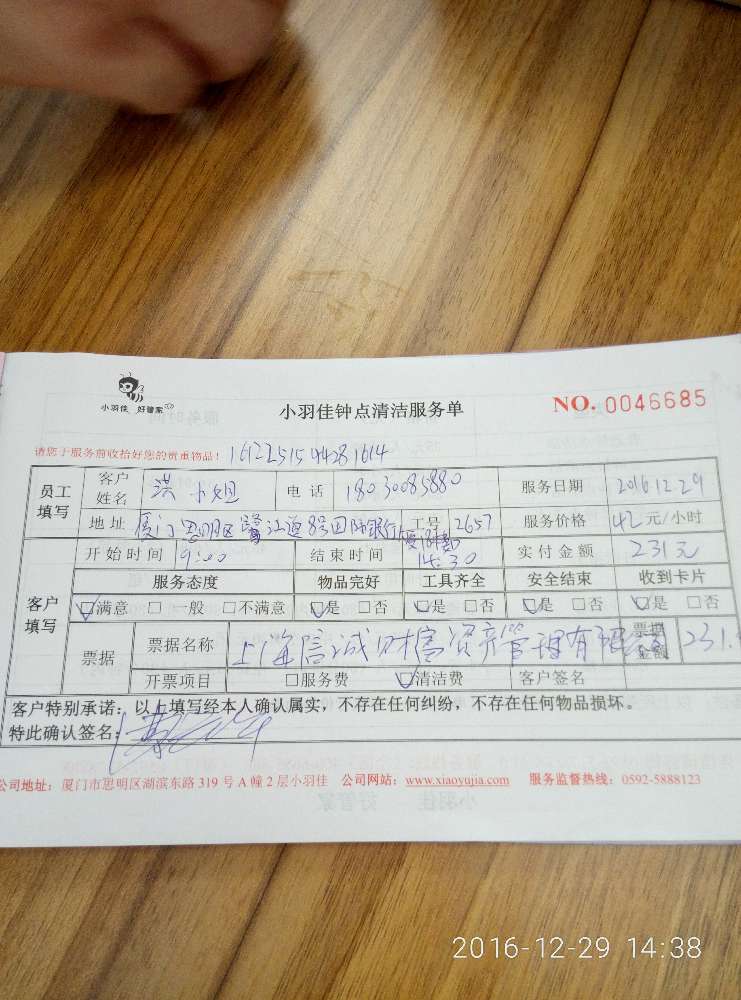 小羽佳 好管家
小羽佳钟点清洁服务单
NO. 0046685
请您于服务前收拾好您的贵重物品！
员工填写 客户姓名 洪小姐 电话 18030085880 服务日期 2016.12.29
地址 厦门思明区鹭江道8号国际银行大厦 工号 2657 服务价格 42元/小时
客户填写 开始时间 9:00 结束时间 14:30 实付金额 231元
服务态度 物品完好 工具齐全 安全结束 收到卡片
☑满意 □一般 □不满意 ☑是 □否 ☑是 □否 ☑是 □否 ☑是 □否
票据 票据名称 上海信诚财富资产管理有限 票据金额 231.
开票项目 □服务费 ☑清洁费 客户签名
客户特别承诺：以上填写经本人确认属实，不存在任何纠纷，不存在任何物品损坏。
特此确认签名：
公司地址：厦门市思明区湖滨东路 319 号 A 幢 2 层小羽佳 公司网站：www.xiaoyujia.com 服务监督热线：0592-5888123
2016-12-29 14:38